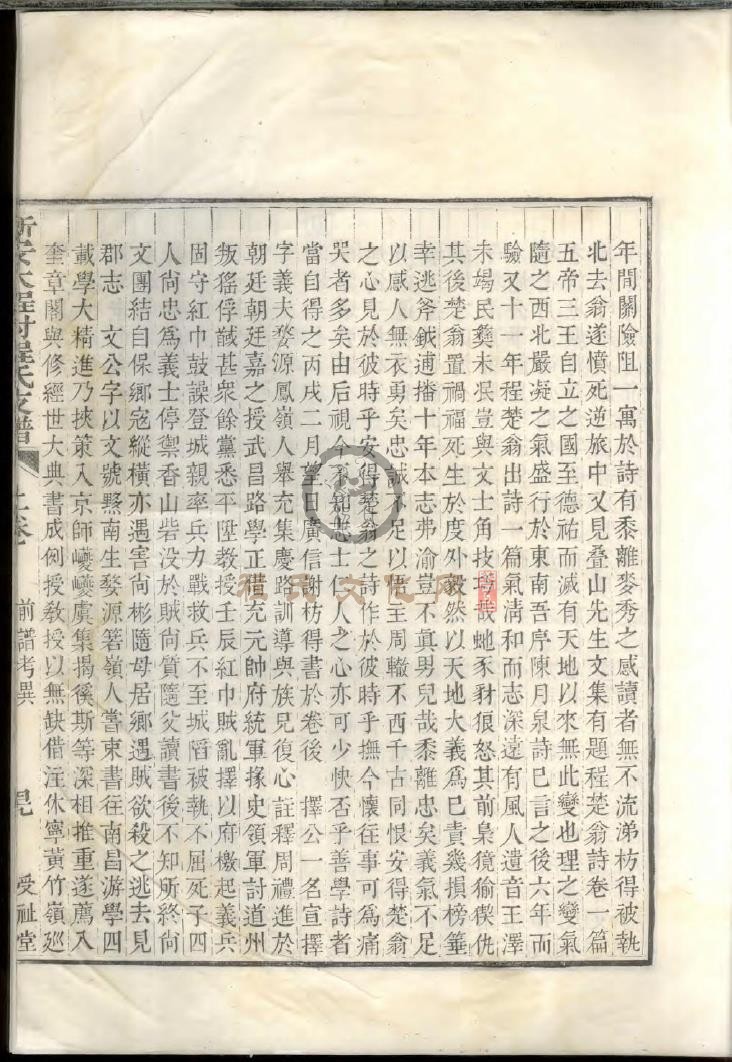 年間關險阻一寓於詩有黍離麥秀之感讀者無不流涕枋得被執
北去翁遂憤死逆旅中又見疊山先生文集有題程楚翁詩卷一篇
五帝三王自立之國至德祐而滅有天地以來無此變也理之變氣
隨之西北嚴凝之氣盛行於東南吾序陳月泉詩巳言之後六年而
驗又十一年程楚翁出詩一篇氣淸和而志深遠有風人遺音王澤
未竭民彛未泯豈與文士角技巧哉虵豕豺狼怒其前梟獍㺄㺉侁
其後楚翁置禍福死生於度外毅然以天地大義爲巳責幾損榜箠
幸逃斧鉞逋播十年本志弗渝豈不眞男兒哉黍離忠矣義氣不足
以感人無衣勇矣忠誠不足以悟主周轍不西千古同恨安得楚翁
之心見於彼時乎安得楚翁之詩作於彼時乎撫今懷往事可爲痛
哭者多矣由后視今不知志士仁人之心亦可少快否乎善學詩者
當自得之丙戌二月望日廣信謝枋得書於卷後 擇公一名宣擇
字義夫婺源鳳嶺人舉充集慶路訓導與族兄復心註釋周禮進於
朝廷朝廷嘉之授武昌路學正借充元帥府統軍掾史領軍討道州
叛猺俘馘甚衆餘黨悉平陞教授壬辰紅巾賊亂擇以府檄起義兵
固守紅巾鼓譟登城親率兵力戰救兵不至城陷被執不屈死子四
人尙忠爲義士停禦香山砦没於賊尙質隨父讀書後不知所終尙
文團結自保鄕寇縱橫亦遇害尙彬隨母居鄕遇賊欲殺之逃去見
郡志 文公字以文號黟南生婺源箬嶺人嘗東書往南昌游學四
載學大精進乃挾策入京師巙巙虞集揭徯斯等深相推重遂薦入
奎章閣與修經世大典書成例授敎授以無缺借注休寧黃竹嶺廵
新安大程村程氏支譜 首卷 前譜考異 受祉堂